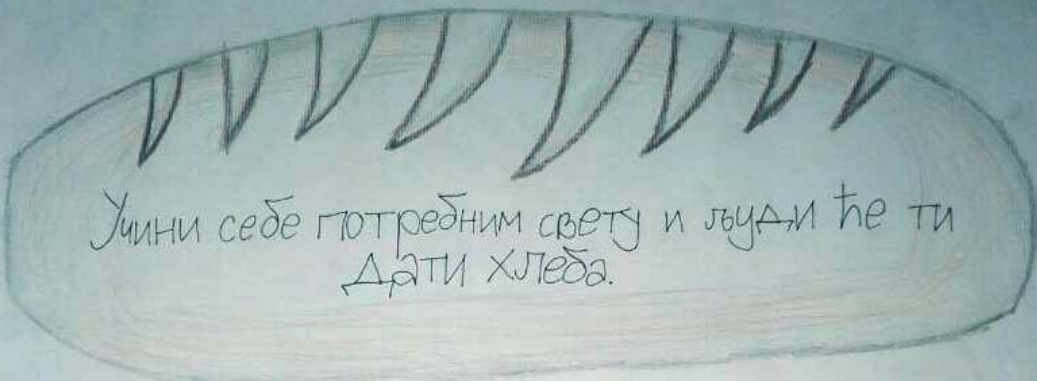 Учини себе потребним свету и људи ће ти
дати хлеба.